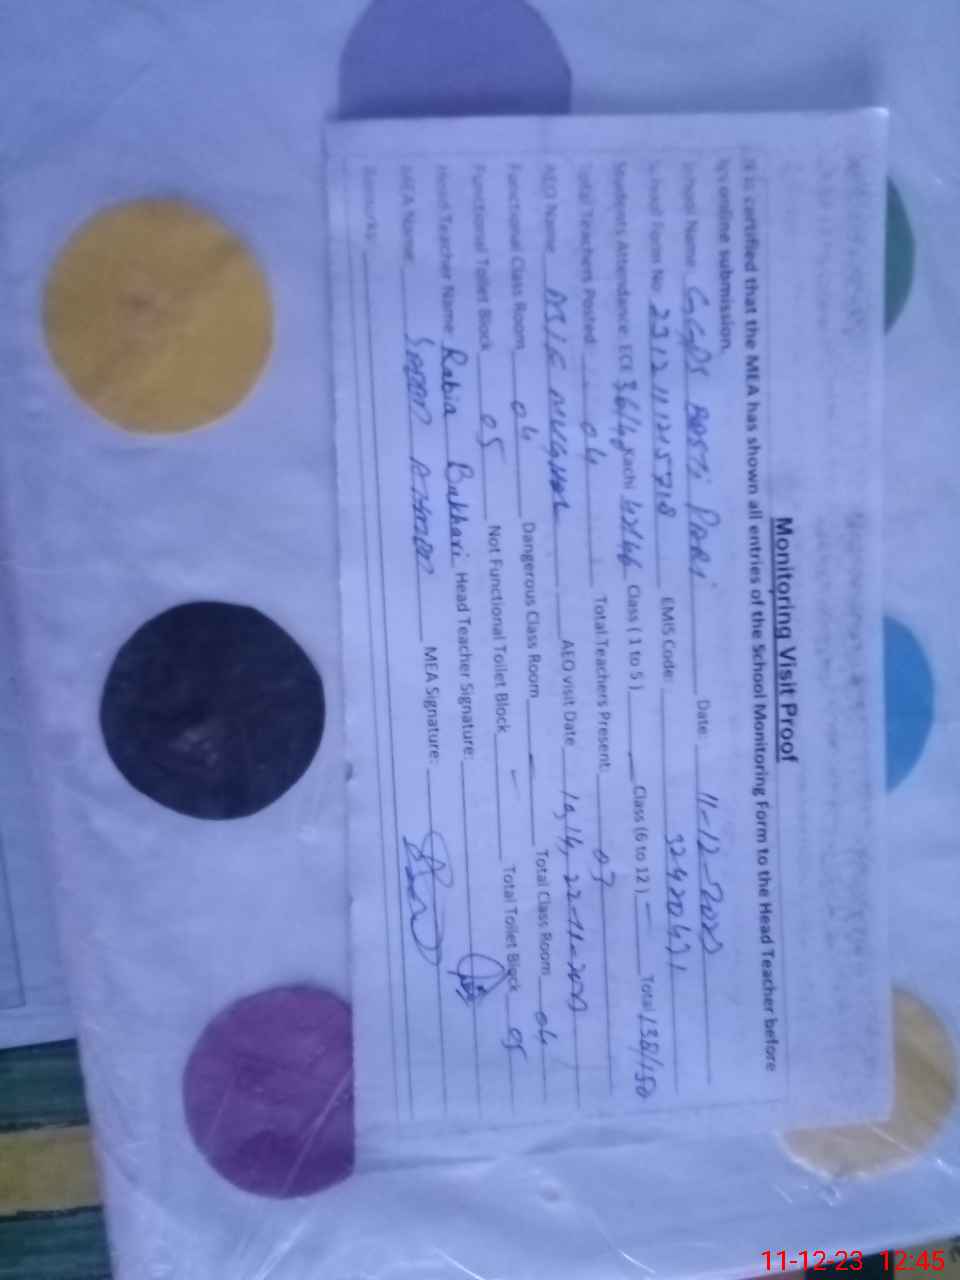 Monitoring Visit Proof
It is certified that the MEA has shown all entries of the School Monitoring Form to the Head Teacher before
its online submission.
School Name GGPS Basti Pari Date: 11-12-2023
School Form No 23121112157 18 EMIS Code: 32420431
Students Attendance: ECE 36/40 Kachi Class ( 1 to 5 ) Class (6 to 12 ) - Total 138/150
Total Teachers Posted: 04 Total Teachers Present: 03
AEO Name AEO visit Date 22-11-2023
Functional Class Room 04 Dangerous Class Room - Total Class Room 04
Functional Toilet Block 05 Not Functional Toilet Block - Total Toilet Block 05
Head Teacher Name Rabia Bukhari Head Teacher Signature:
MEA Name SAAD AHMAD MEA Signature:
Remarks:
11-12-23 12:45